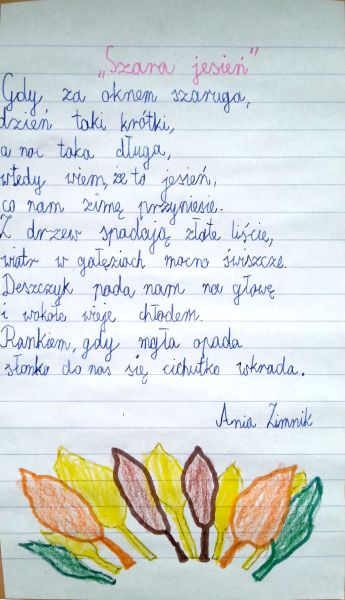 „Szara jesień"
Gdy za oknem szaruga,
dzień taki krótki,
a noc taka długa,
wtedy wiem, że to jesień,
co nam zimę przyniesie.
Z drzew spadają złote liście,
wiatr w gałęziach mocno świszcze.
Deszczyk pada nam na głowę
i wokoło wieje chłodem.
Rankiem, gdy mgła opada
słonko do nas się cichutko wkrada.
Ania Zimnik